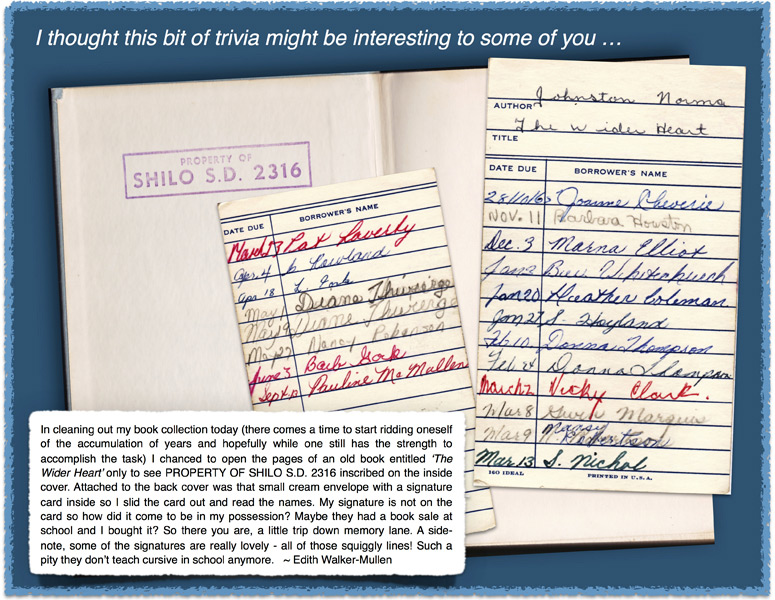 I thought this bit of trivia might be interesting to some of you …
PROPERTY OF
SHILO S.D. 2316
DATE DUE BORROWER'S NAME
March 17 Pat Laverty
Apr. 4 Rowland
Apr 18
May 1 Diane Thivierge
May 19 Diane Thivierge
May 27 Nancy
June 3 Barb
Sept Pauline McMullen
AUTHOR Johnston Norma
TITLE The Wider Heart
DATE DUE BORROWER'S NAME
Joanne Cheverie
NOV. 11 Barbara Houston
Dec. 3 Marna Elliot
Jan 2
Jan 20 Heather Coleman
Jan 27 S. Hayland
Feb 10 Donna Thompson
Feb 24 Donna Thompson
March 2 Vicky Clark.
Mar 8 Gwen Marquis
Mar 9 Nancy Robertson
Mar. 13 S. Nichol
160 IDEAL PRINTED IN U.S.A.
In cleaning out my book collection today (there comes a time to start ridding oneself
of the accumulation of years and hopefully while one still has the strength to
accomplish the task) I chanced to open the pages of an old book entitled ‘The
Wider Heart’ only to see PROPERTY OF SHILO S.D. 2316 inscribed on the inside
cover. Attached to the back cover was that small cream envelope with a signature
card inside so I slid the card out and read the names. My signature is not on the
card so how did it come to be in my possession? Maybe they had a book sale at
school and I bought it? So there you are, a little trip down memory lane. A side-
note, some of the signatures are really lovely - all of those squiggly lines! Such a
pity they don’t teach cursive in school anymore. ~ Edith Walker-Mullen